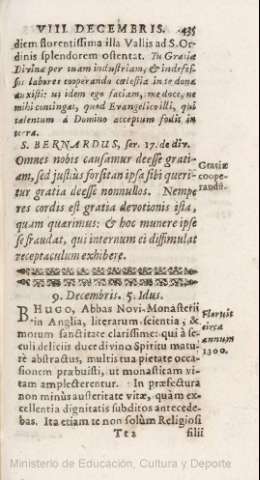 VIII. DECEMBRIS. 435
diem florentissima illa Vallis ad S. Or-
dinis splendorem ostentat. Tu Gratiæ
Divinæ per tuam industriam, & indefes-
sos labores cooperando cœlestia in te dona
auxisti: ut idem ego faciam, me doce, ne
mihi contingat, quod Evangelico illi, qui
talentum à Domino acceptum fodit in
terra.
S. BERNARDUS, ser. 17. de div.
Omnes nobis causamur deesse grati-
am, sed justius forsitan ipsa sibi queri-
tur gratia deesse nonnullos. Nempe
res cordis est gratia devotionis ista,
quam quærimus: & hoc munere ipse
se fraudat, qui interne ei dissimulat
receptaculum exhibere.
Gratiæ
coope-
randũ.
9. Decembris. 5. Idus.
B. HUGO, Abbas Novi-Monasterii
in Anglia, literarum scientia, &
morum sanctitate clarissime: qui à se-
culi deliciis duce divino Spiritu matu-
rè abstractus, multis tua pietate occa-
sionem præbuisti, ut monasticam vi-
tam amplecterentur. In præfectura
non minùs austeritate vitæ, quàm ex-
cellentia dignitatis subditos antecede-
bas. Ita etiam te non solùm Religiosi
Floruit
circa
annum
1300.
Tt2 filii
Ministerio de Educación, Cultura y Deporte